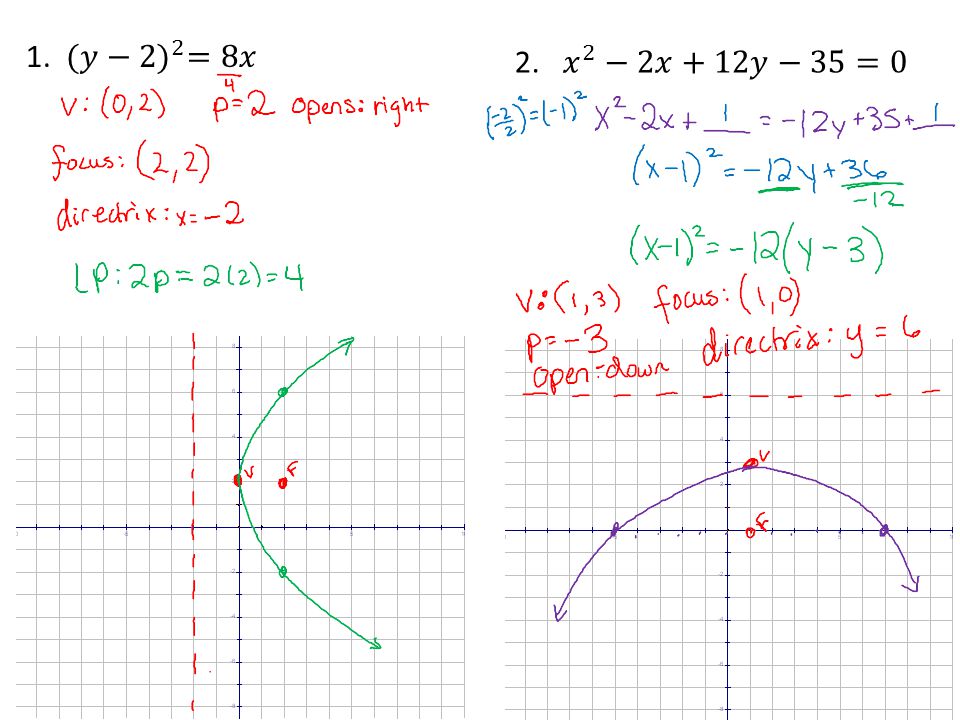 1. (y − 2)² = 8x
4
v: (0,2) p=2 opens: right
focus: (2,2)
directrix: x=-2
LP: 2p = 2(2)=4
V
F
2. x² − 2x + 12y − 35 = 0
(-2/2)² = (-1)² x² - 2x + 1 = -12y + 35 + 1
(x-1)² = -12y + 36
-12
(x-1)² = -12(y - 3)
v: (1,3) focus: (1,0)
p=-3 directrix: y = 6
open=down
V
F